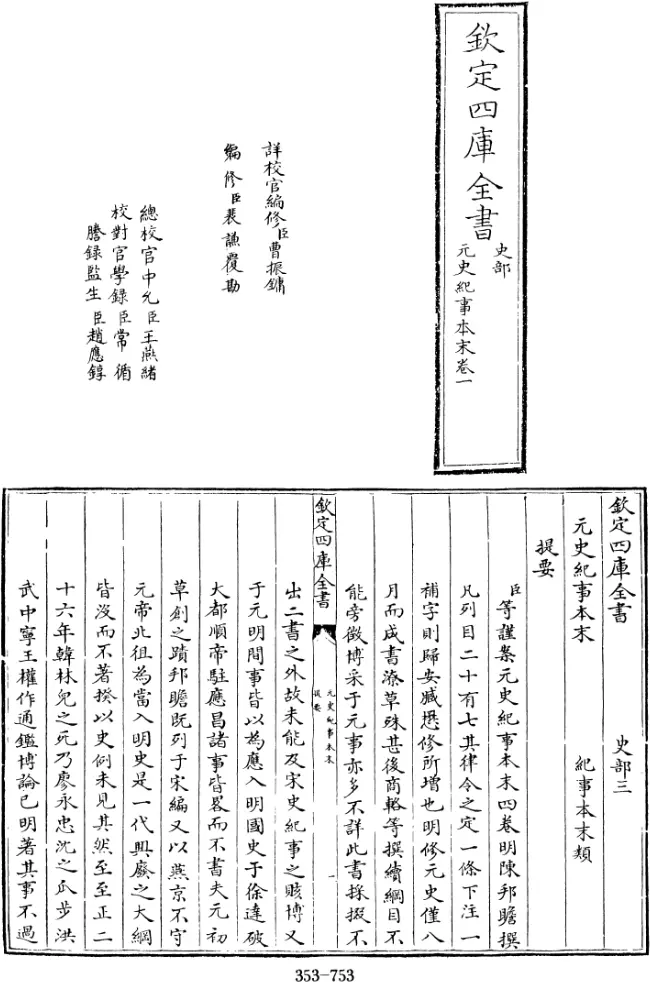 欽定四庫全書
史部
元史紀事本末卷一
詳校官編修臣曹振鏞
編修臣裴謙覆勘
總校官中允臣王燕緒
校對官學錄臣常循
謄錄監生臣趙應錞
欽定四庫全書 史部三
元史紀事本末 紀事本末類
提要
臣等謹案元史紀事本末四卷明陳邦瞻撰
凡列目二十有七其律令之定一條下注一
補字則歸安臧懋修所增也明修元史僅八
月而成書潦草殊甚後商輅等撰續綱目不
能旁徵博采于元事亦多不詳此書採掇不
欽定四庫全書
元史紀事本末
提要
一
出二書之外故未能及宋史紀事之賅博又
于元明間事皆以為應入明國史于徐達破
大都順帝駐應昌諸事皆畧而不書夫元初
草創之蹟邦瞻既列于宋編又以燕京不守
元帝北徂為當入明史是一代興廢之大綱
皆沒而不著揆以史例未見其然至至正二
十六年韓林兒之死乃廖永忠沈之瓜步洪
武中寧王權作通鑑博論已明著其事不過
353-753